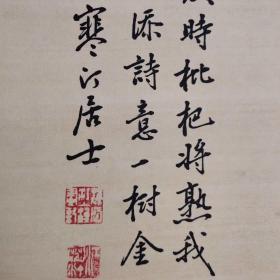 時枇杷將熟我
添詩意一樹金
寒汀居士